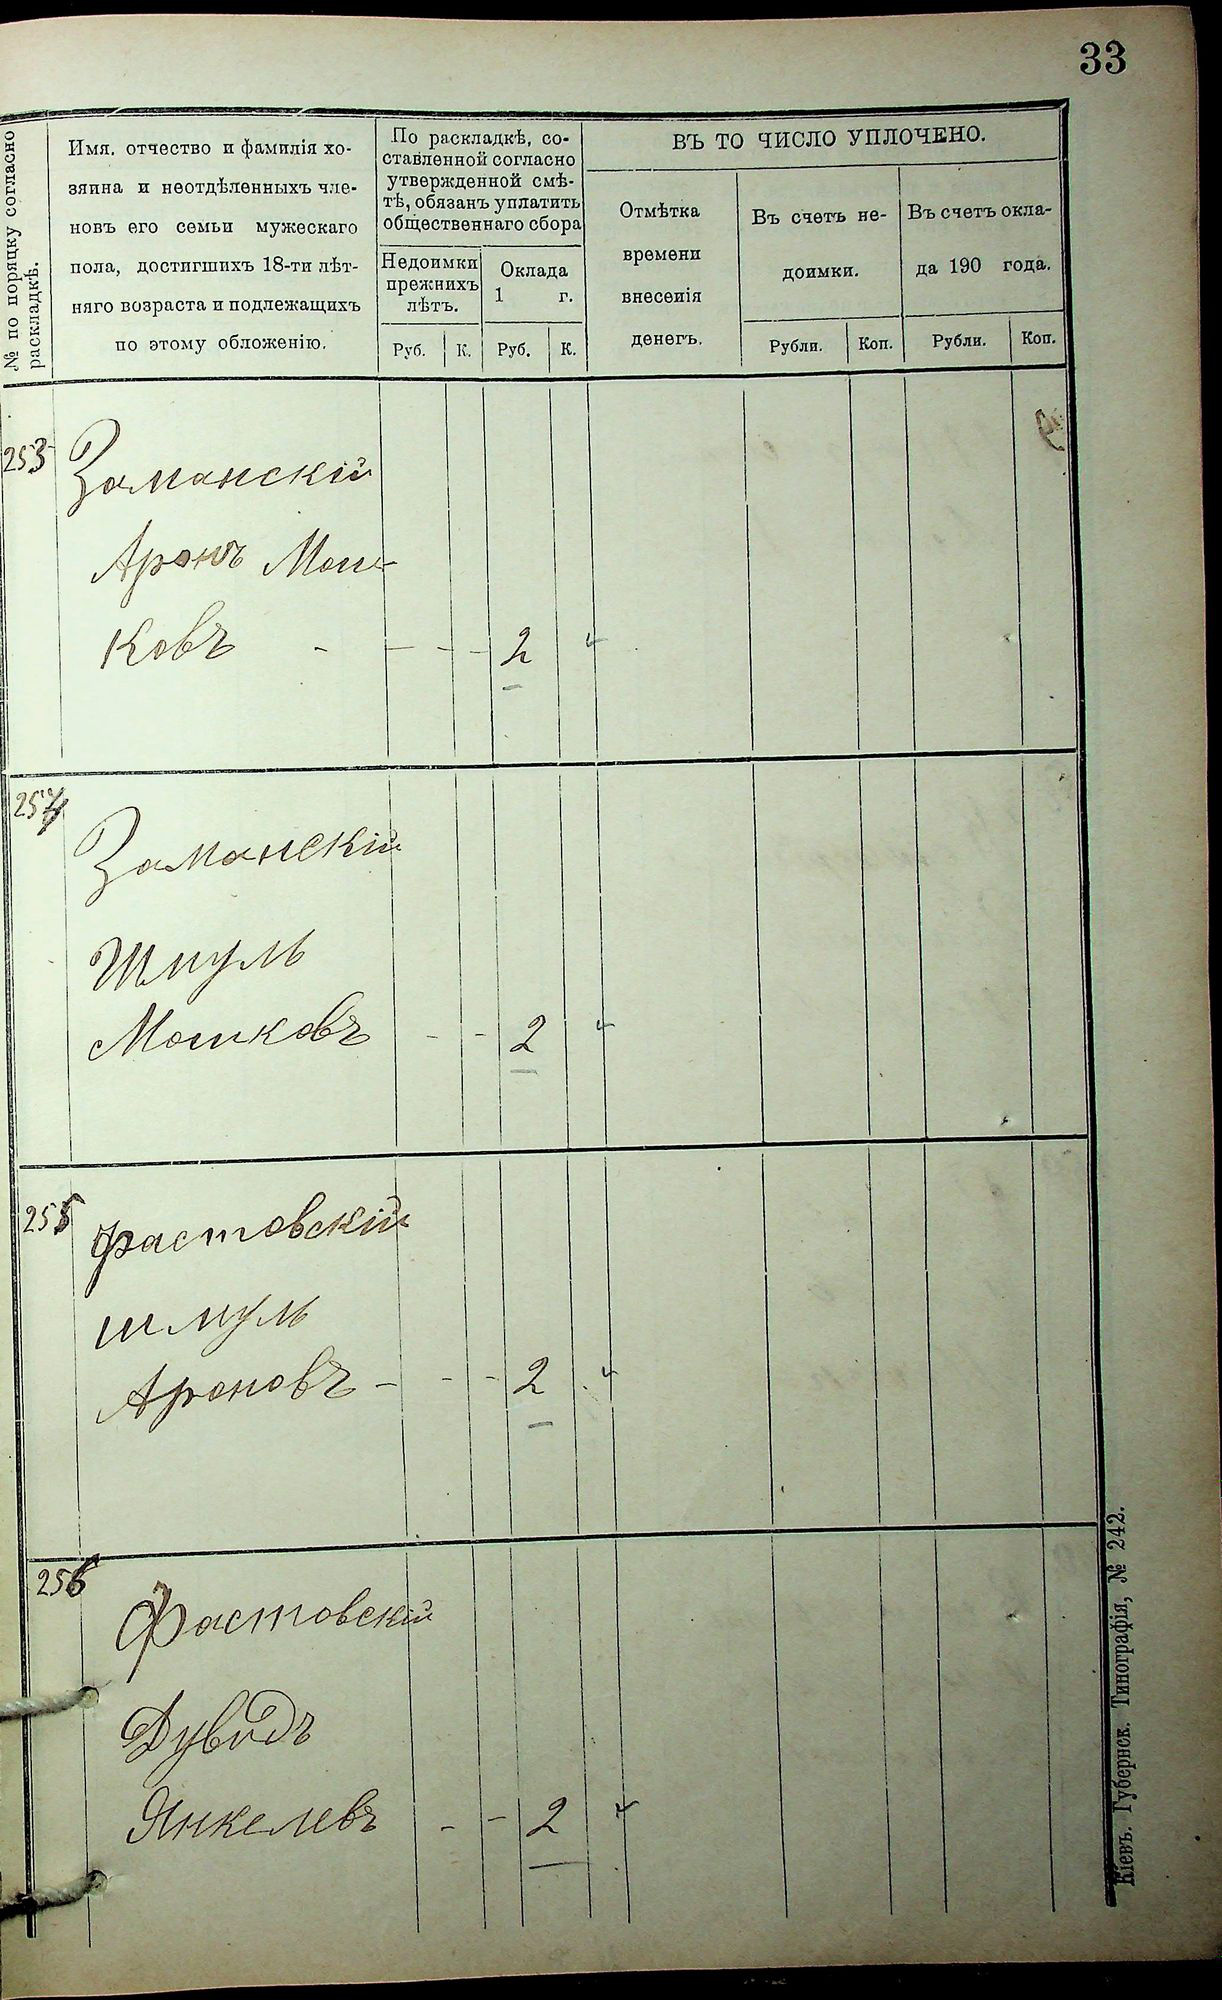 33
№ по порядку согласно
раскладкѣ.
Имя. отчество и фамилія хо-
зяина и неотдѣленныхъ чле-
новъ его семьи мужескаго
пола, достигшихъ 18-ти лѣт-
няго возраста и подлежащихъ
по этому обложенію.
По раскладкѣ, со-
ставленной согласно
утвержденной смѣ-
тѣ, обязанъ уплатить
общественнаго сбора
Недоимки
прежнихъ
лѣтъ.
Оклада
1 г.
Руб. К. Руб. К.
ВЪ ТО ЧИСЛО УПЛОЧЕНО.
Отмѣтка
времени
внесенія
денегъ.
Въ счетъ не-
доимки.
Въ счетъ окла-
да 190 года.
Рубли. Коп. Рубли. Коп.
253 Заманскій
Аронъ Мош-
ковъ - - - - 2 "
254 Заманскій
Шмуль
Мошковъ - - 2 "
255 Фастовскій
Шмуль
Ароновъ - - - 2 "
256 Фастовскій
Дувидъ
Янкелевъ - - 2 "
Кіевъ. Губернск. Типографія, № 242.